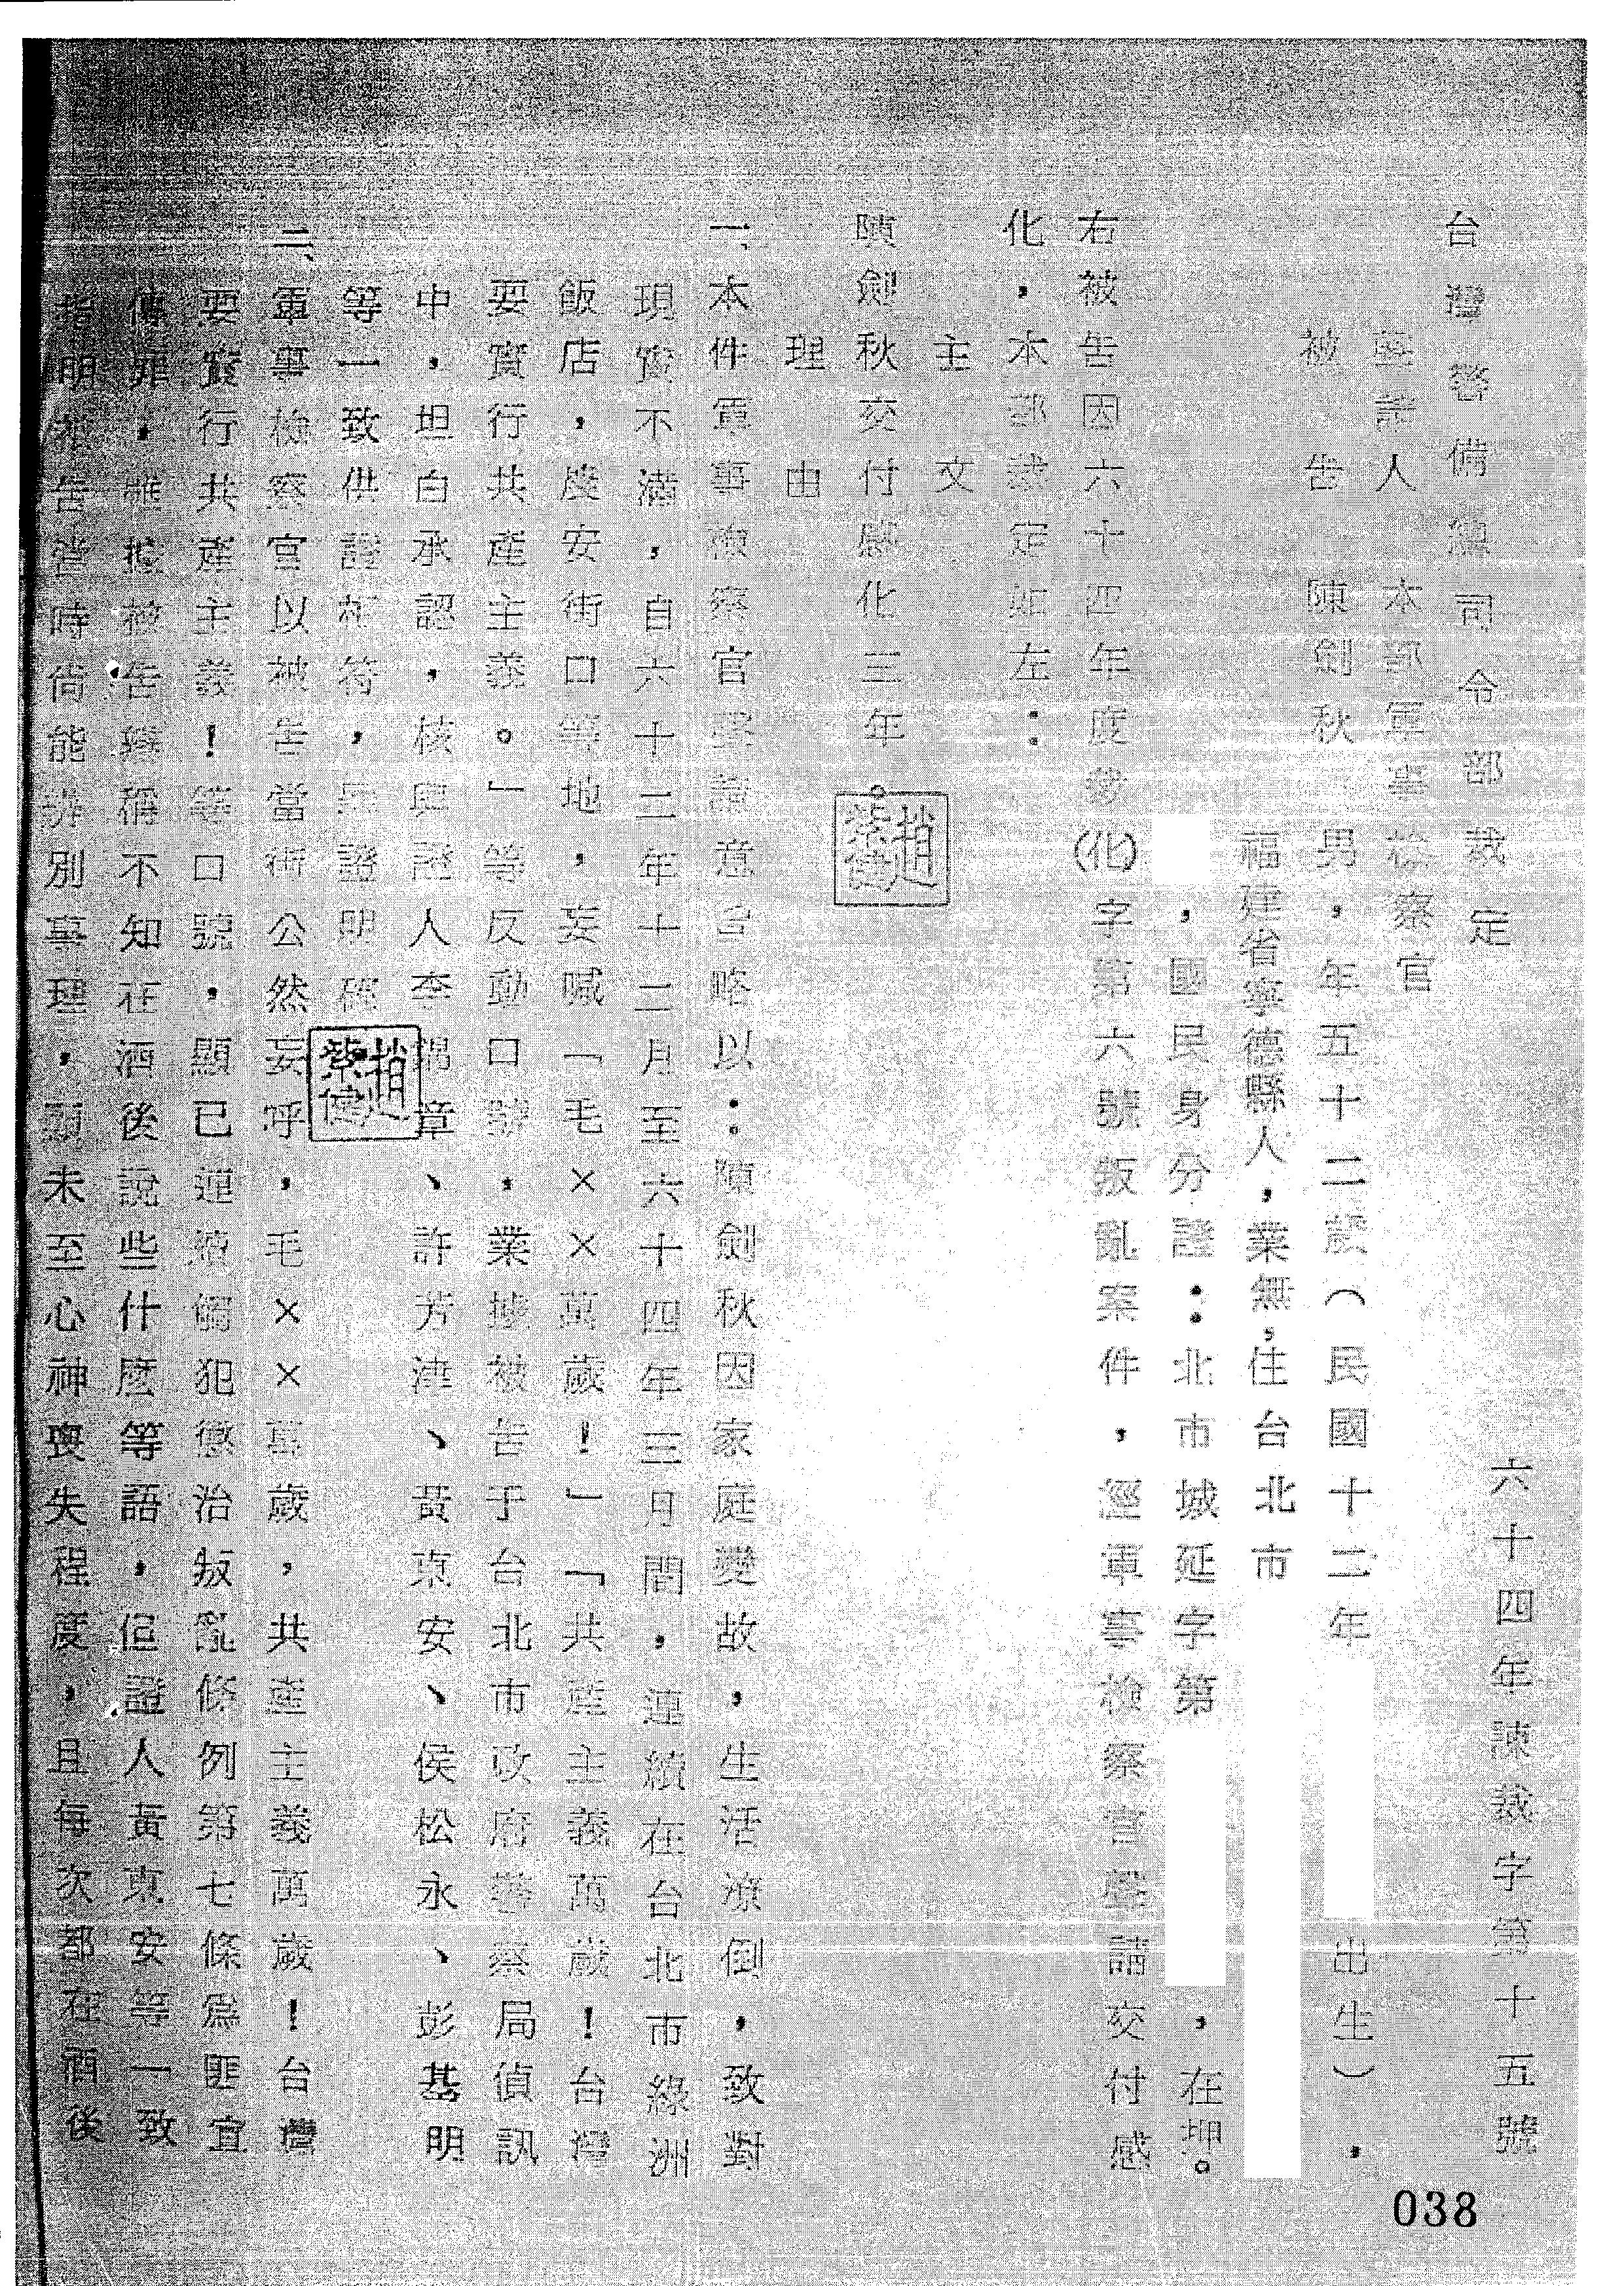 台灣警備總司令部裁定
六十四年諫裁字第十五號
聲請人　本部軍事檢察官
被告　陳劍秋　男，年五十二歲（民國十二年　出生），
福建省寧德縣人，業無，住台北市
，國民身分證：北市城延字第　，在押。
右被告因六十四年度　(化)字第六號叛亂案件，經軍事檢察官聲請交付感
化，本部裁定如左：
主文
陳劍秋交付感化三年。
趙紫健
理由
一、本件軍事檢察官聲請意旨略以：陳劍秋因家庭變故，生活潦倒，致對
現實不滿，自六十二年十二月至六十四年三月間，連續在台北市綠洲
飯店，慶安街口等地，妄喊「毛××萬歲！」「共產主義萬歲！台灣
要實行共產主義。」等反動口號，業據被告于台北市政府警察局偵訊
中，坦白承認，核與證人李錦章、許芳津、黃東安、侯松永、彭基明
等一致供證相符，罪證明確
趙紫健
二、軍事檢察官以被告當街公然妄呼，毛××萬歲，共產主義萬歲！台灣
要實行共產主義！等口號，顯已連續觸犯懲治叛亂條例第七條為匪宣
傳罪，惟據被告辯稱不知在酒後說些什麼等語，但證人黃東安等一致
指明被告當時尚能弁別事理，顯未至心神喪失程度，且每次都在酒後
038